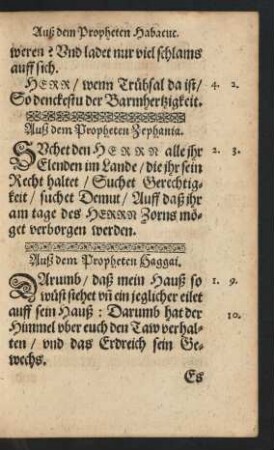 Auß dem Propheten Habacuc.
weren? Vnd ladet nur viel schlams
auff sich.
HERR / wenn Trübsal da ist / 4. 2.
So denckestu der Barmhertzigkeit.
Auß dem Propheten Zephania.
SVchet den HERRN alle jhr 2. 3.
Elenden im Lande / die jhr sein
Recht haltet / Suchet Gerechtig-
keit / suchet Demut / Auff daß jhr
am tage des HERRN Zorns mö-
get verborgen werden.
Auß dem Propheten Haggai.
DArumb / daß mein Hauß so 1. 9.
wüst stehet vñ ein jeglicher eilet
auff sein Hauß: Darumb hat der
Himmel vber euch den Taw verhal- 10.
ten / vnd das Erdreich sein Ge-
wechs.
Es